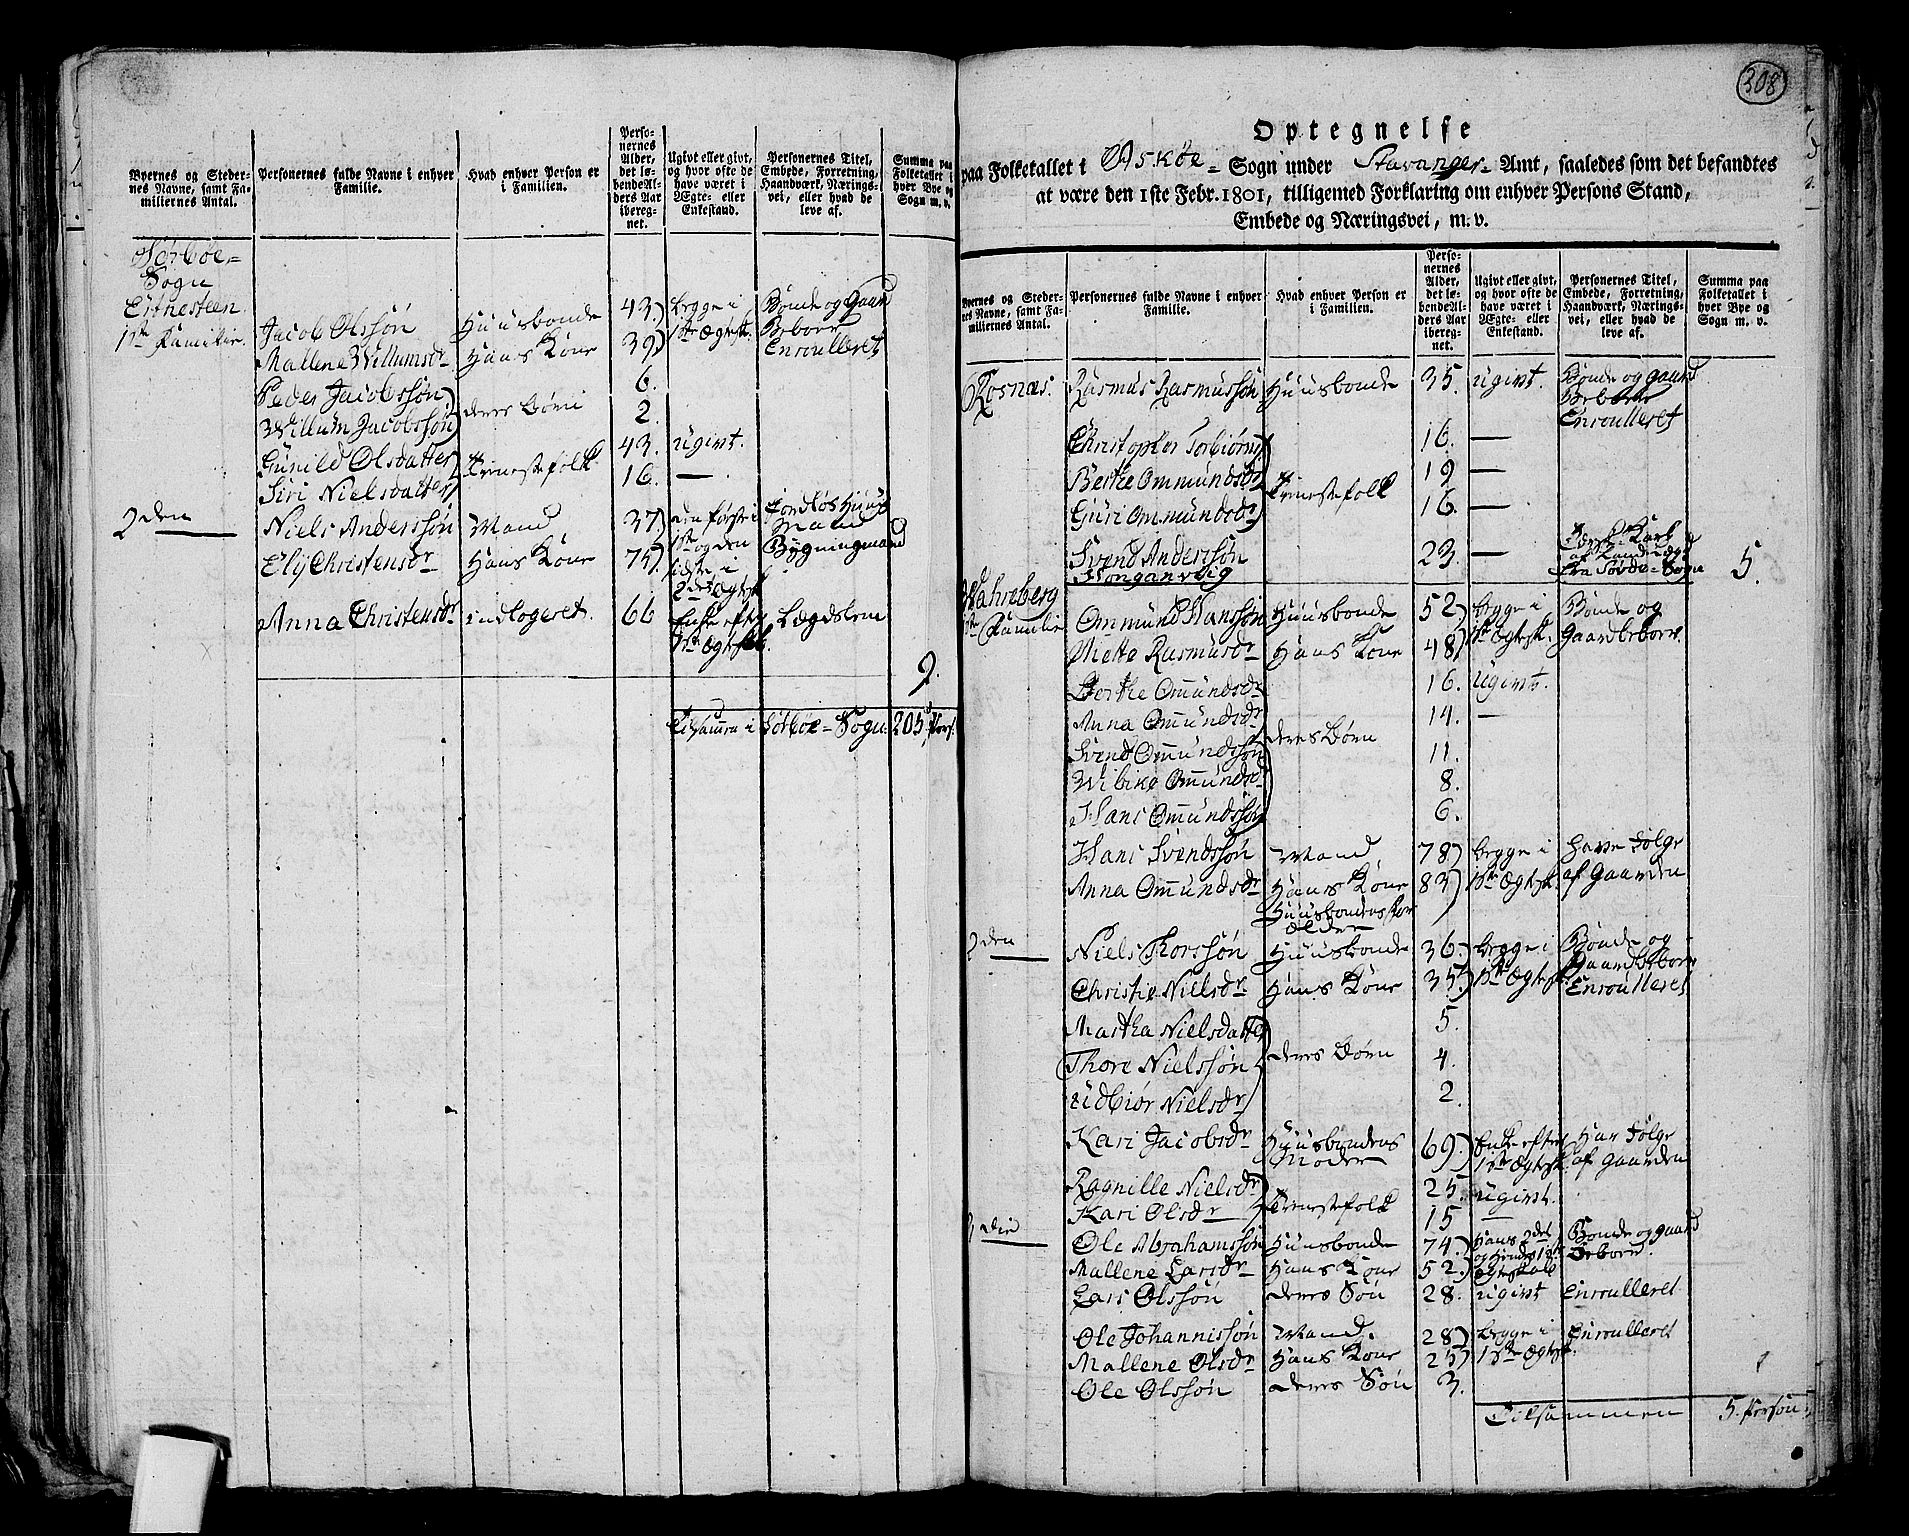 308
Byernes og Stedernes Navne, samt Familiernes Antal.
Personernes fulde Navne i enhver Familie.
Hvad enhver Person er i Familien.
Personernes Alder, det løbende Alders Aar iberegnet.
Ugivt eller givt, og hvor ofte de have været i Ægte- eller Enkestand.
Personernes Titel, Embede, Forretning, Haandværk, Næringsvei, eller hvad de leve af.
Summa paa Folketallet i hver Bye og Sogn m. v.
Sørboe=
Sogn
1ste Familie.
Jacob Olssøn Huusbonde 43) begge i Bonde og Gaard
Mallene Willumsdr Hans Kone 39) 1ste Ægtesk. Beboer Enroulleret
Peder Jacobssøn 6.
Willum Jacobssøn) deres Børn 2.
Gunild Olsdatter 43. ugivt.
Siri Nielsdatter) Tienestefolk 16. —
2den
Niels Anderssøn Mand 37) den første i Jordløs Huus Mand
Ely Christensdr Hans Kone 75) 1ste og den sidste i 2det Ægtesk. Bygningmand
Anna Christensdr indlogeret. 66 Enke efter 1ste Ægtesk. Lægdslem
9.
Tilsamen i Sørboe= Sogn: 205 Pers.
Optegnelse
paa Folketallet i Askøe= Sogn under Stavanger= Amt, saaledes som det befandtes
at være den 1ste Febr. 1801, tilligemed Forklaring om enhver Persons Stand,
Embede og Næringsvei, m. v.
Byernes og Stedernes Navne, samt Familiernes Antal.
Personernes fulde Navne i enhver Familie.
Hvad enhver Person er i Familien.
Personernes Alder, det løbende Alders Aar iberegnet.
Ugivt eller givt, og hvor ofte de have været i Ægte- eller Enkestand.
Personernes Titel, Embede, Forretning, Haandværk, Næringsvei, eller hvad de leve af.
Summa paa Folketallet i hver Bye og Sogn m. v.
Rosnæs. Rasmus Rasmussøn Huusbonde 35. ugivt. Bonde og gaard Beboer Enroulleret
Christopher Torbiørns) 16. —
Berthe Ommundsdr 19 —
Guri Ommundsdr) Tienestefolk 16. —
Svend Anderssøn 23. — fra Søvde= Sogn 5.
Wahreberg
1ste Familie Ommund Hanssøn Huusbonde 52) begge i Bonde og
Mette Rasmusdr Hans Kone 48) 1ste Ægtesk. Gaardbeboer.
Berthe Omundsdr 16. Ugivt.
Anna Omundsdr 14. —
Svend Omundssøn deres Børn 11.
Wibike Omundsdr 8.
Hans Omundssøn 6.
Hans Svendssøn Mand 78) begge i have Folge
Anna Omundsdr Hans Kone 83) 1ste Ægtesk. af Gaarden
Huusbondens For
ældre
2den
Niels Thorssøn Huusbonde 36. begge i Bonde og
Christie Nielsdr Hans Kone 35) 1ste Ægtesk. Gaardbeboer Enroulleret
Martha Nielsdatter 5.
Thore Nielssøn deres Børn 4.
Udbiør Nielsdr) 2.
Kari Jacobsdr Huusbondens Moder 69) Enke efter 1ste Ægtesk. Har Folge af Gaarden
Ragnille Nielsdr) 25. ugivt.
Kari Olsdr Tienestefolk 15 —
3die
Ole Abrahamssøn Huusbonde 74. Hans 2det Bonde og gaard
Mallene Larsdr Hans Kone 52.) og Hendes 1ste Ægteskab Beboer.
Lars Olssøn deres Søn 28. ugivt Enroulleret
Ole Johannissøn Mand. 28) begge i Enroulleret
Mallene Olsdr Hans Kone 25) 1ste Ægtesk.
Ole Olssøn deres Søn 3.
Tilsammen 5. Person: